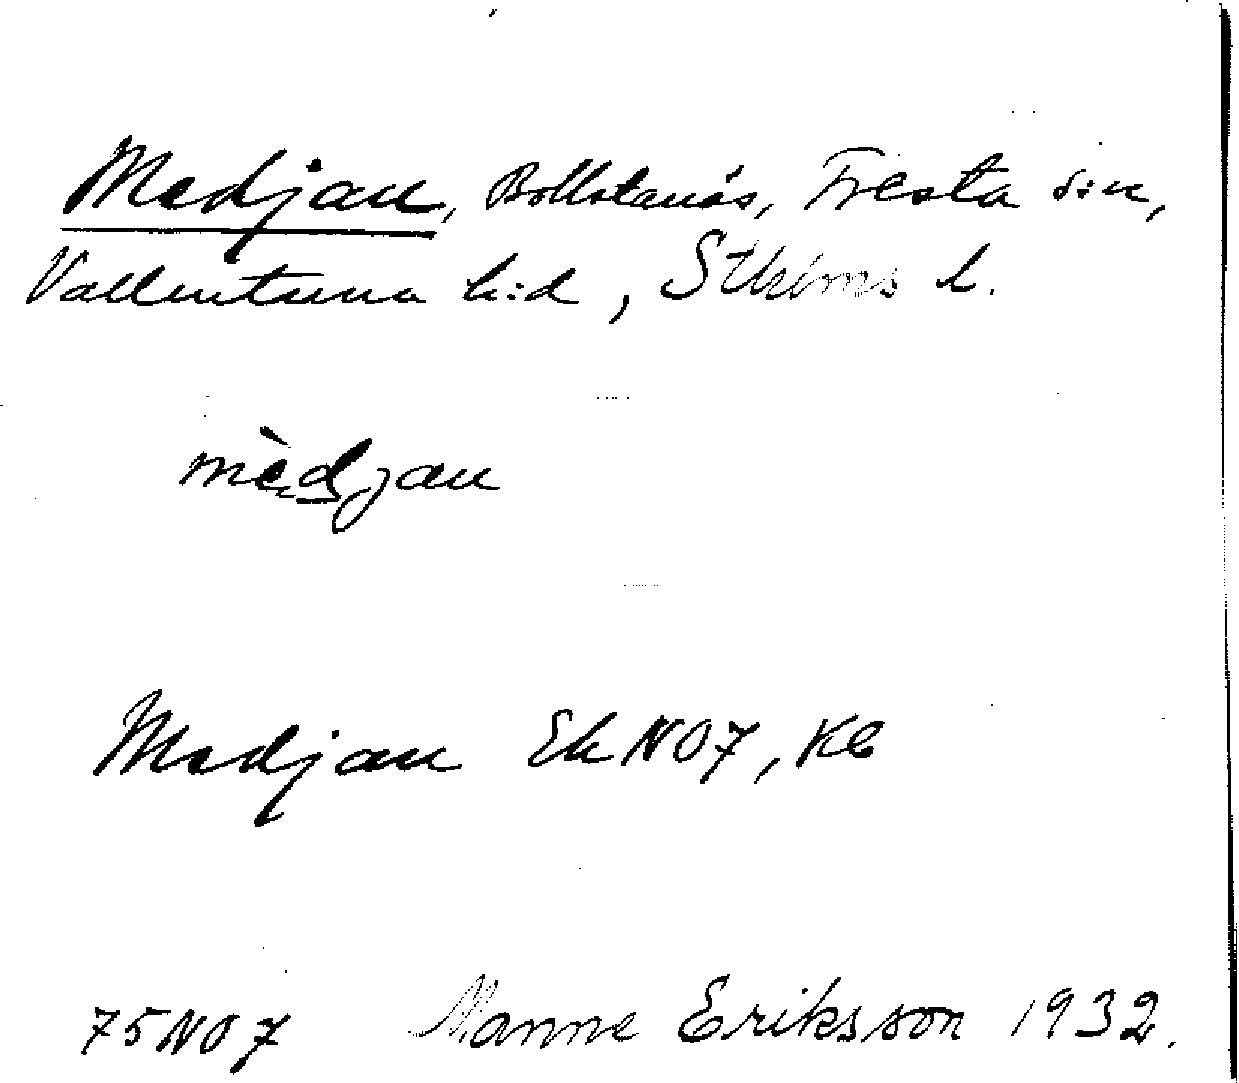 Medjan, Bollstanäs, Fresta s:n,
Vallentuna h:d, Sthlms l.
mèdjan
Medjan Ek NO7, Kb
75NO7 Manne Eriksson 1932.